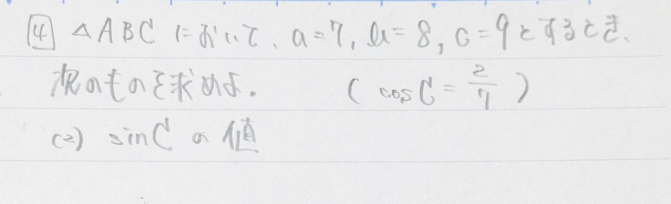 4 △ABCにおいて、a=7, b=8, c=9とするとき、
次のものを求めよ。 ( cosC = 2/7 )
(2) sinCの値